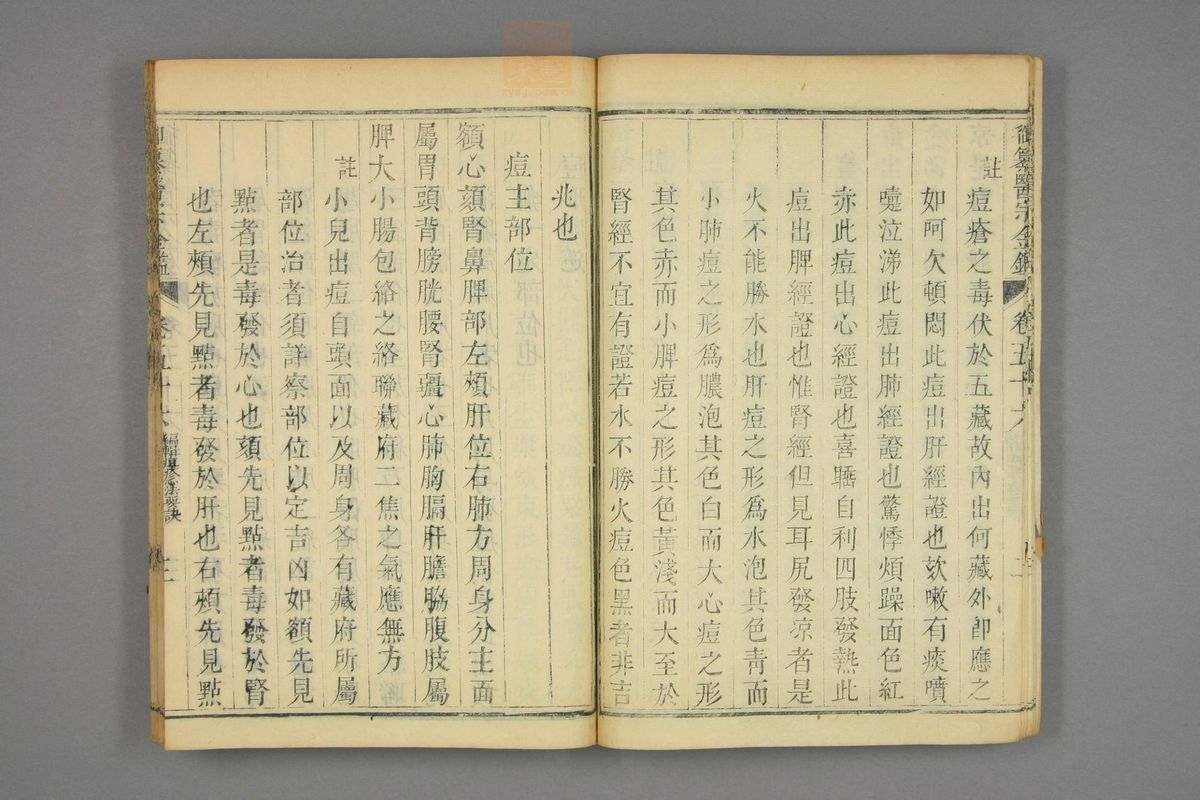 御纂醫宗金鑑 卷五十六
註 痘瘡之毒伏於五藏故內出何藏外卽應之
如阿欠頓悶此痘出肝經證也欬嗽有痰噴
嚏泣涕此痘出肺經證也驚悸煩躁面色紅
赤此痘出心經證也喜睡自利四肢發熱此
痘出脾經證也惟腎經但見耳尻發凉者是
火不能勝水也肝痘之形爲水泡其色青而
小肺痘之形爲膿泡其色白而大心痘之形
其色赤而小脾痘之形其色黃淺而大至於
腎經不宜有證若水不勝火痘色黑者非吉
兆也
痘主部位
額心頦腎鼻脾部左頰肝位右肺方周身分主面
屬胃頭背膀胱腰腎疆心肺胸膈肝膽脇腹肢屬
脾大小腸包絡之絡聯藏府三焦之氣應無方
註 小兒出痘自頭面以及周身各有藏府所屬
部位治者須詳察部位以定吉凶如額先見
點者是毒發於心也頦先見點者毒發於腎
也左頰先見點者毒發於肝也右頰先見點
御纂醫宗金鑑 卷五十六 編輯痘疹心法要訣